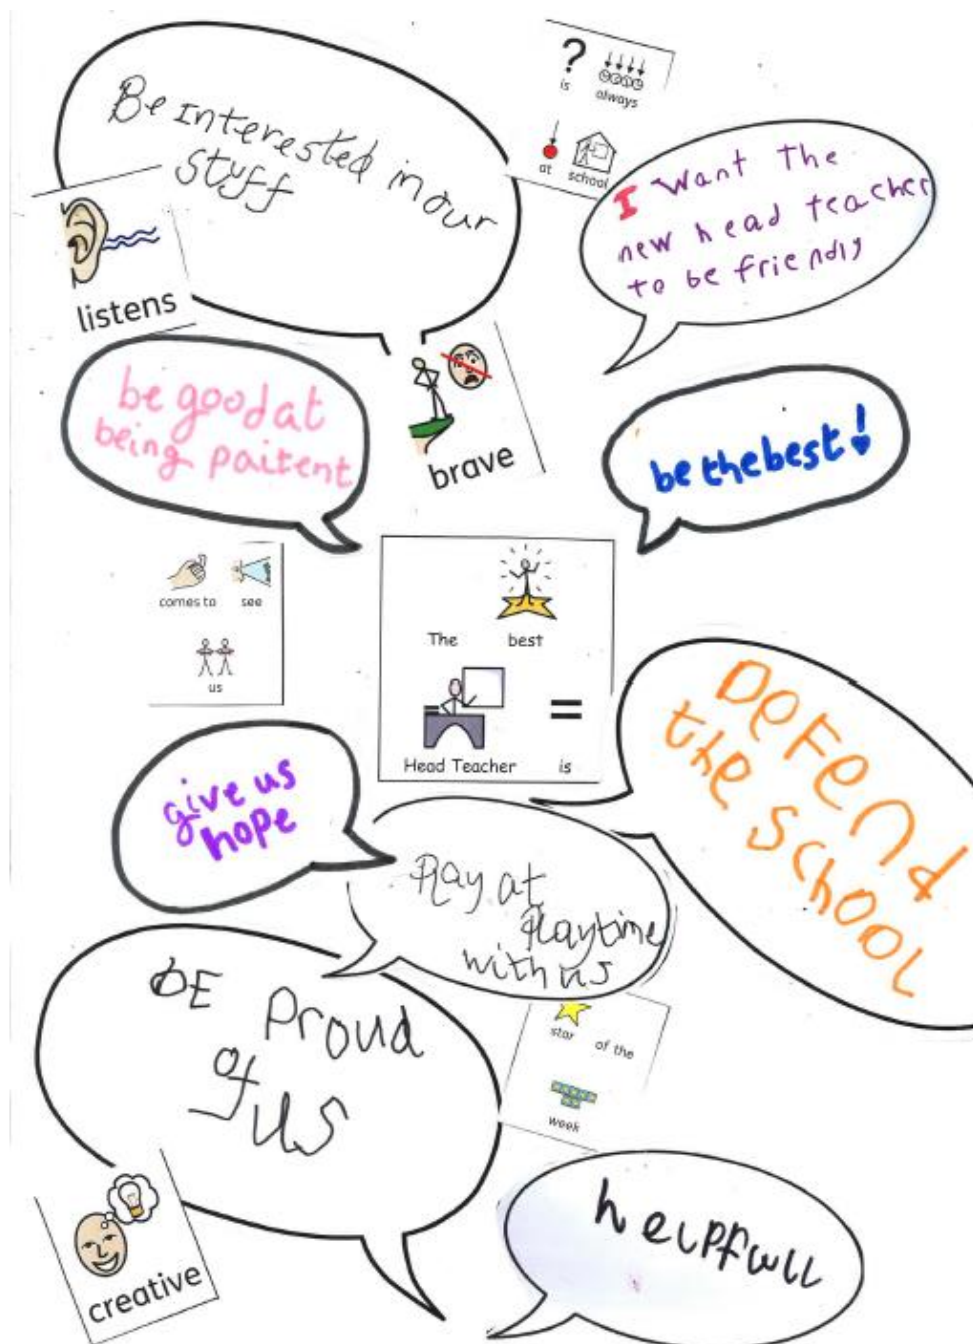 Be interested in our
stuff
?
is always
at school
I want the
new head teacher
to be friendly
listens
be good at
being paitent
brave
be the best!
comes to see
us
The best
=
Head Teacher is
DeFend
the School
give us
hope
Play at
playtime
with us
bE Proud
of
us
star of the
week
creative
helpfull